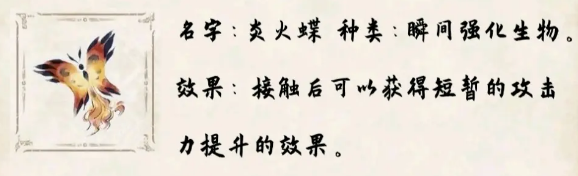 名字：炎火蝶 种类：瞬间强化生物。
效果：接触后可以获得短暂的攻击
力提升的效果。